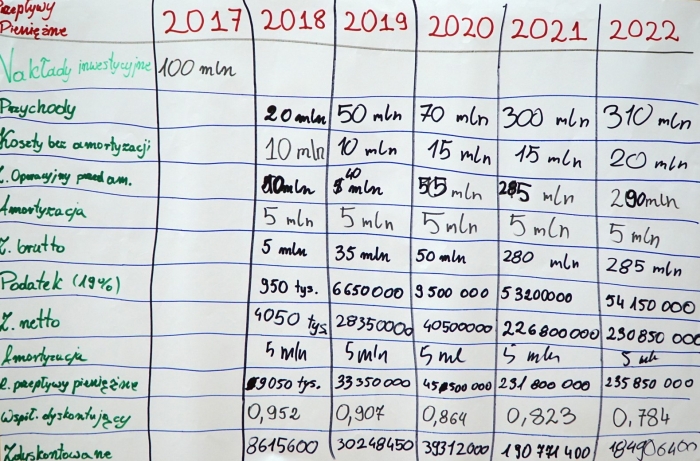 Przepływy
Pieniężne 2017 2018 2019 2020 2021 2022
Nakłady inwestycyjne 100 mln
Przychody 20 mln 50 mln 70 mln 300 mln 310 mln
Koszty bez amortyzacji 10 mln 10 mln 15 mln 15 mln 20 mln
Z. Operacyjny przed am. 10mln 40 mln 55 mln 285 mln 290mln
Amortyzacja 5 mln 5 mln 5 mln 5 mln 5 mln
Z. brutto 5 mln 35 mln 50 mln 280 mln 285 mln
Podatek (19%) 950 tys. 6650000 9500 000 53200000 54 150 000
Z. netto 4050 tys 28350000 40500000 226800000 230 850 000
Amortyzacja 5 mln 5mln 5 ml 5 mln 5 mln
przepływy pieniężne 9050 tys. 33 350 000 45 500 000 231 800 000 235 850 000
Współ. dyskontujący 0,952 0,907 0,864 0,823 0,784
Zdyskontowane 8615600 30248450 39312000 190 771 400 184906400